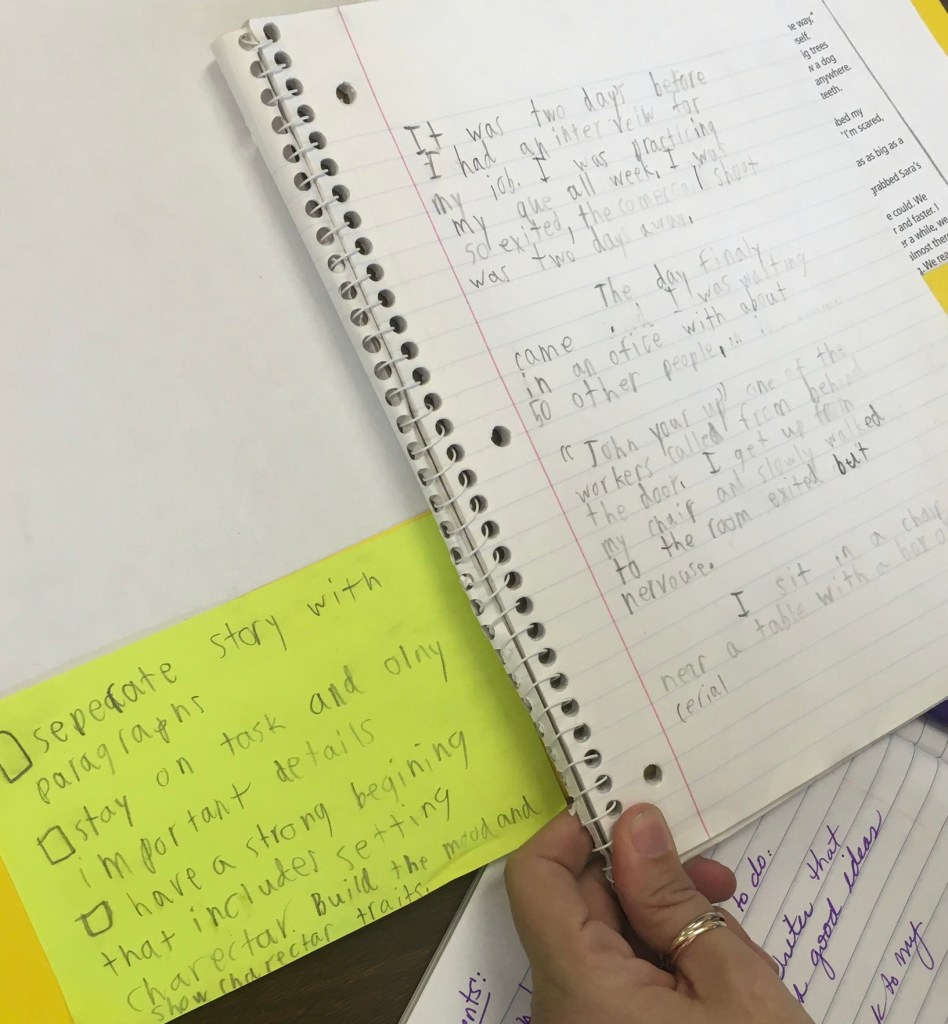 It was two days before
I had an interveiw for
my job. I was practicing
my que all week, I was
so exited, the comercal shoot
was two days away.
The day finaly
came I was waiting
in an ofice with about
50 other people,
"John your up" one of the
workers called from behind
the door. I get up from
my chair and slowly walked
to the room exited but
nervouse.
I sit in a chair
near a table with a box o
cerial
seperate story with
paragraphs
stay on task and olny
important details
have a strong begining
that includes setting
charectar. Build the mood and
show charectar traits.
e way,"
self.
ig trees
w a dog
anywhere.
teeth.
bed my
"I'm scared,
as as big as a
grabbed Sara's
e could. We
r and faster. I
er a while, we
almost there
. We rea
nts:
to do:
writer that
good ideas
to my